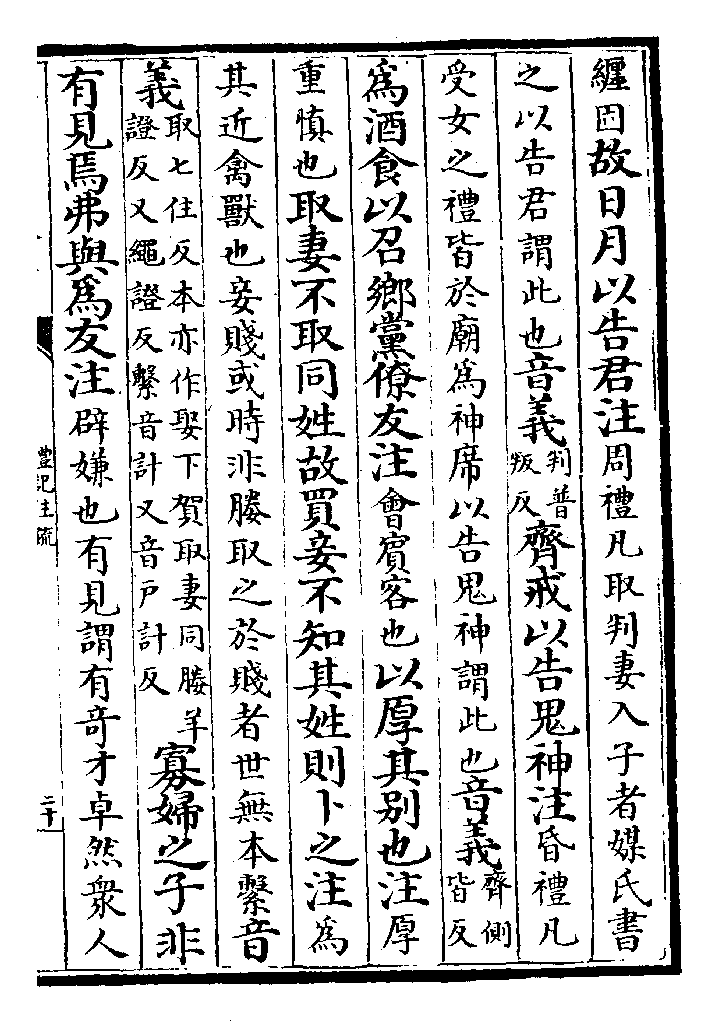 纒固故日月以告君注周禮凡取判妻入子者媒氏書
之以告君謂此也音義判普叛反齊戒以告鬼神注昏禮凡
受女之禮皆於廟為神席以告鬼神謂此也音義齊側皆反
為酒食以召鄉黨僚友注會賓客也以厚其別也注厚
重慎也取妻不取同姓故買妾不知其姓則卜之注為
其近禽獸也妾賤或時非媵取之於賤者世無本繫音
義取七住反本亦作娶下賀取妻同媵羊證反又繩證反繫音計又音戶計反寡婦之子非
有見焉弗與為友注辟嫌也有見謂有奇才卓然衆人
禮記注疏
二十